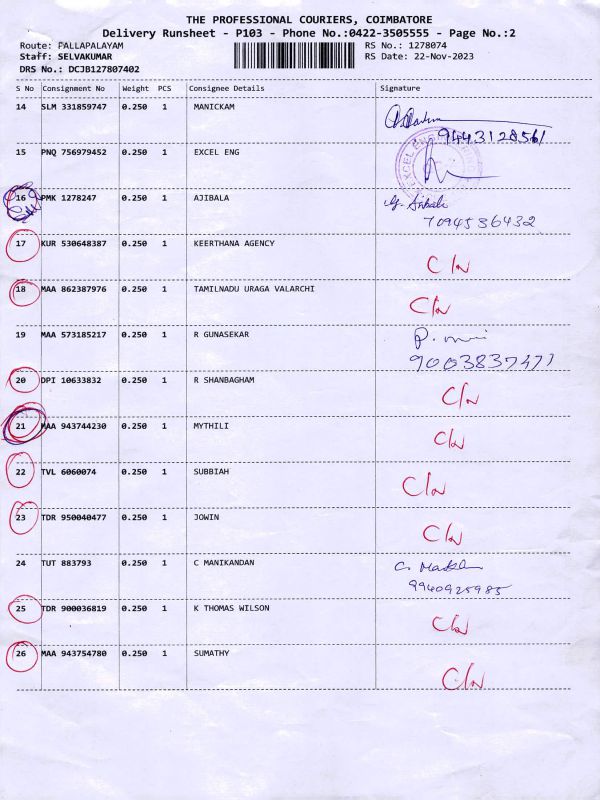 THE PROFESSIONAL COURIERS, COIMBATORE
Delivery Runsheet - P103 - Phone No.:0422-3505555 - Page No.:2
Route: PALLAPALAYAM RS No.: 1278074
Staff: SELVAKUMAR RS Date: 22-Nov-2023
DRS No.: DCJB127807402
S No Consignment No Weight PCS Consignee Details Signature
14 SLM 331859747 0.250 1 MANICKAM
9443128561
15 PNQ 756979452 0.250 1 EXCEL ENG
EXCEL
16 PMK 1278247 0.250 1 AJIBALA
7094536432
17 KUR 530648387 0.250 1 KEERTHANA AGENCY
C/N
18 MAA 862387976 0.250 1 TAMILNADU URAGA VALARCHI
C/N
19 MAA 573185217 0.250 1 R GUNASEKAR
9003837477
20 DPI 10633832 0.250 1 R SHANBAGHAM
C/N
21 MAA 943744230 0.250 1 MYTHILI
C/N
22 TVL 6060074 0.250 1 SUBBIAH
C/N
23 TDR 950040477 0.250 1 JOWIN
C/N
24 TUT 883793 0.250 1 C MANIKANDAN
9940925985
25 TDR 900036819 0.250 1 K THOMAS WILSON
C/N
26 MAA 943754780 0.250 1 SUMATHY
C/N